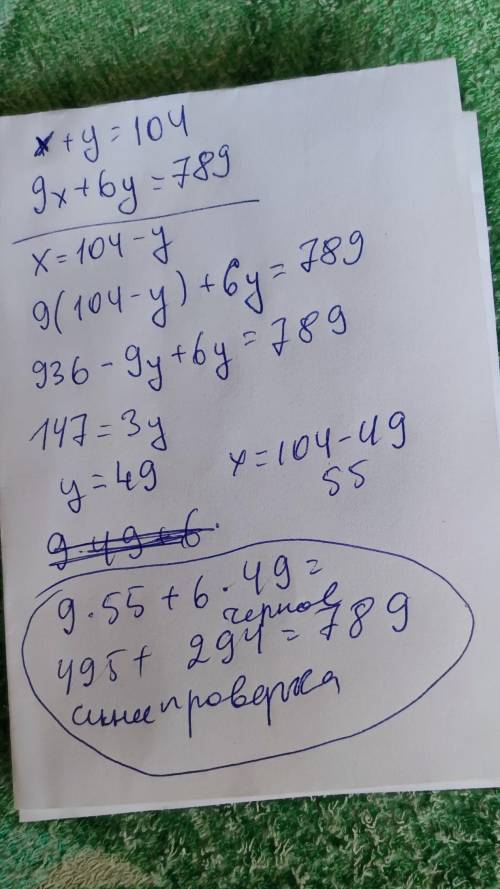 x + y = 104
9x + 6y = 789
x = 104 - y
9(104 - y) + 6y = 789
936 - 9y + 6y = 789
147 = 3y
y = 49
x = 104 - 49
55
9 · 49 + 6 ·
9 · 55 + 6 · 49 =
чернов
495 + 294 = 789
проверка